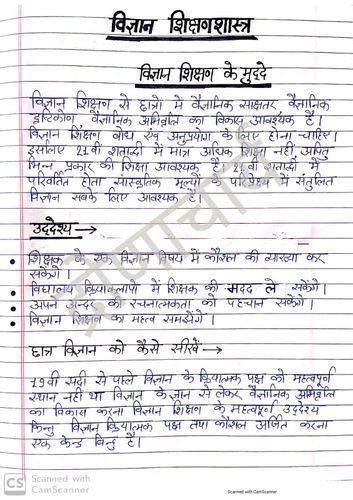 विज्ञान शिक्षणशास्त्र
विज्ञान शिक्षण के मुद्दे
विज्ञान शिक्षण से छात्रों में वैज्ञानिक साक्षतर वैज्ञानिक
दृष्टिकोण वैज्ञानिक अभिवृत्ति का विकास आवश्यक है।
विज्ञान शिक्षण बोध एंव अनुप्रयोग के लिए होना चाहिए।
इसलिए 21वी शताब्दी में मात्र अधिक शिक्षा नहीं अपितु
भिन्न प्रकार की शिक्षा आवश्यक है। 21वी शताब्दी में
परिवर्तित होता सांस्कृतिक मूल्यों के परिप्रेक्ष्य में संतुलित
विज्ञान सबके लिए आवश्यक है।
उद्देश्य →
• शिक्षक के एक विज्ञान विषय में कौशल की व्याख्या कर
सकेंगे।
• विद्यालय क्रियाकलापों में शिक्षक की मदद ले सकेंगे।
• अपने अन्दर की रचनात्मकता को पहचान सकेंगे।
• विज्ञान शिक्षण का महत्व समझेंगे।
छात्र विज्ञान को कैसे सीखें →
19वी सदी से पहले विज्ञान के क्रियात्मक पक्ष को महत्वपूर्ण
स्थान नहीं था विज्ञान के ज्ञान से लेकर वैज्ञानिक अभिवृत्ति
का विकास करना विज्ञान शिक्षण के महत्वपूर्ण उद्देश्य
किन्तु विज्ञान क्रियात्मक पक्ष तथा कौशल अर्जित करना
एक केन्द्र बिन्दु है।
CS Scanned with
CamScanner
Scanned with CamScanner